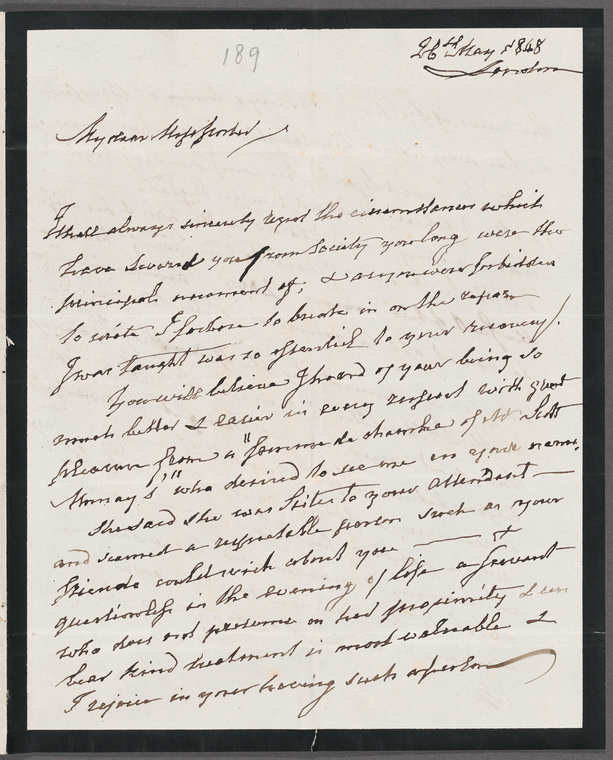 189
26th May 1848
London
My dear Miss Porter
I shall always sincerely regret the circumstances which
have severed you from Society you long were the
principal ornament of; & as you were forbidden
to write I forbore to break in on the repose
I was taught was so essential to your recovery/.
You will believe I heard of your being so
much better & easier in every respect with great
pleasure from a "femme de chambre of Scott
Murray's" who desired to see me in your name.
She said she was Sister to your attendant
and seemed a respectable person such as your
friends could wish about you ——
questionless in the evening of life a servant
who does not presume on her proximity & can
bear kind treatment is most valuable &
I rejoice in your having such a person